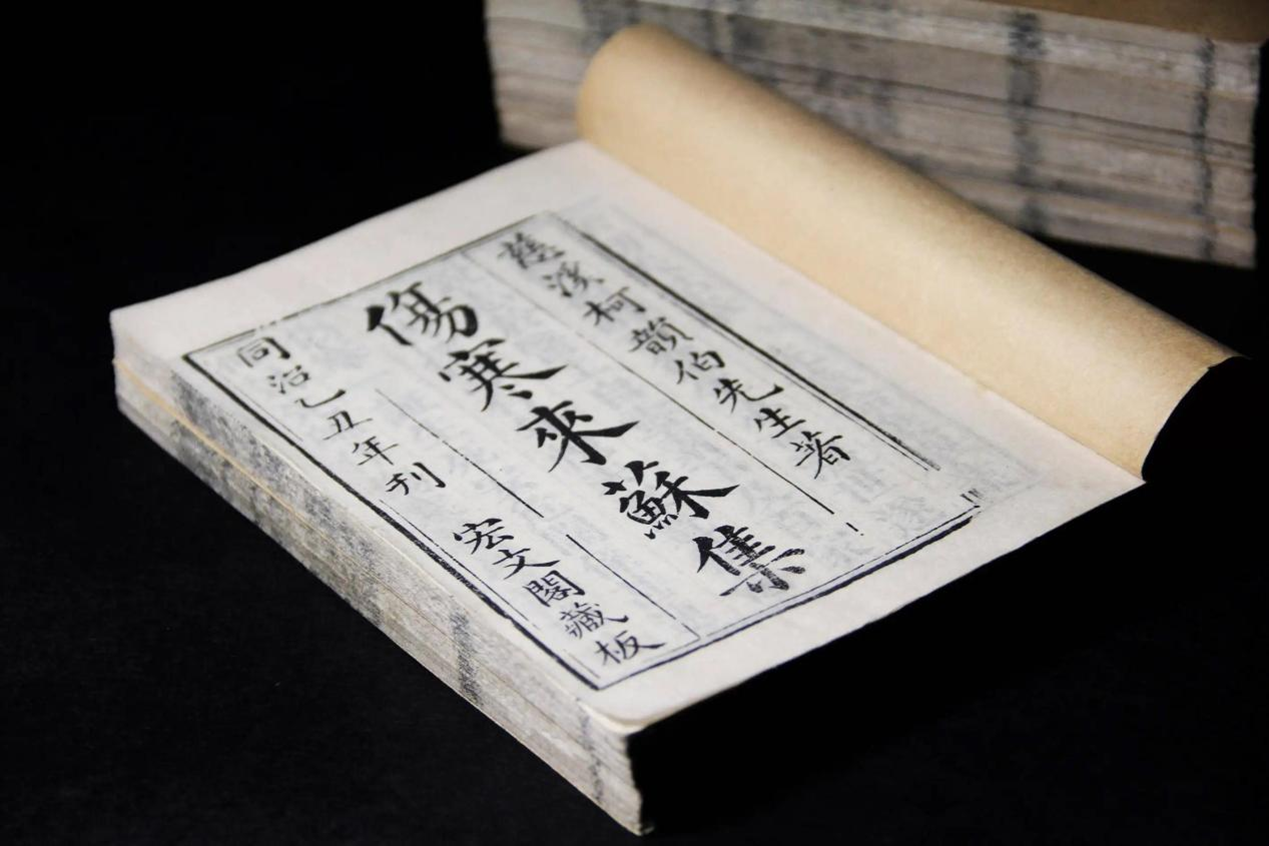 慈溪柯韻伯先生著
傷寒來蘇集
同治乙丑年刊
宏文閣藏板